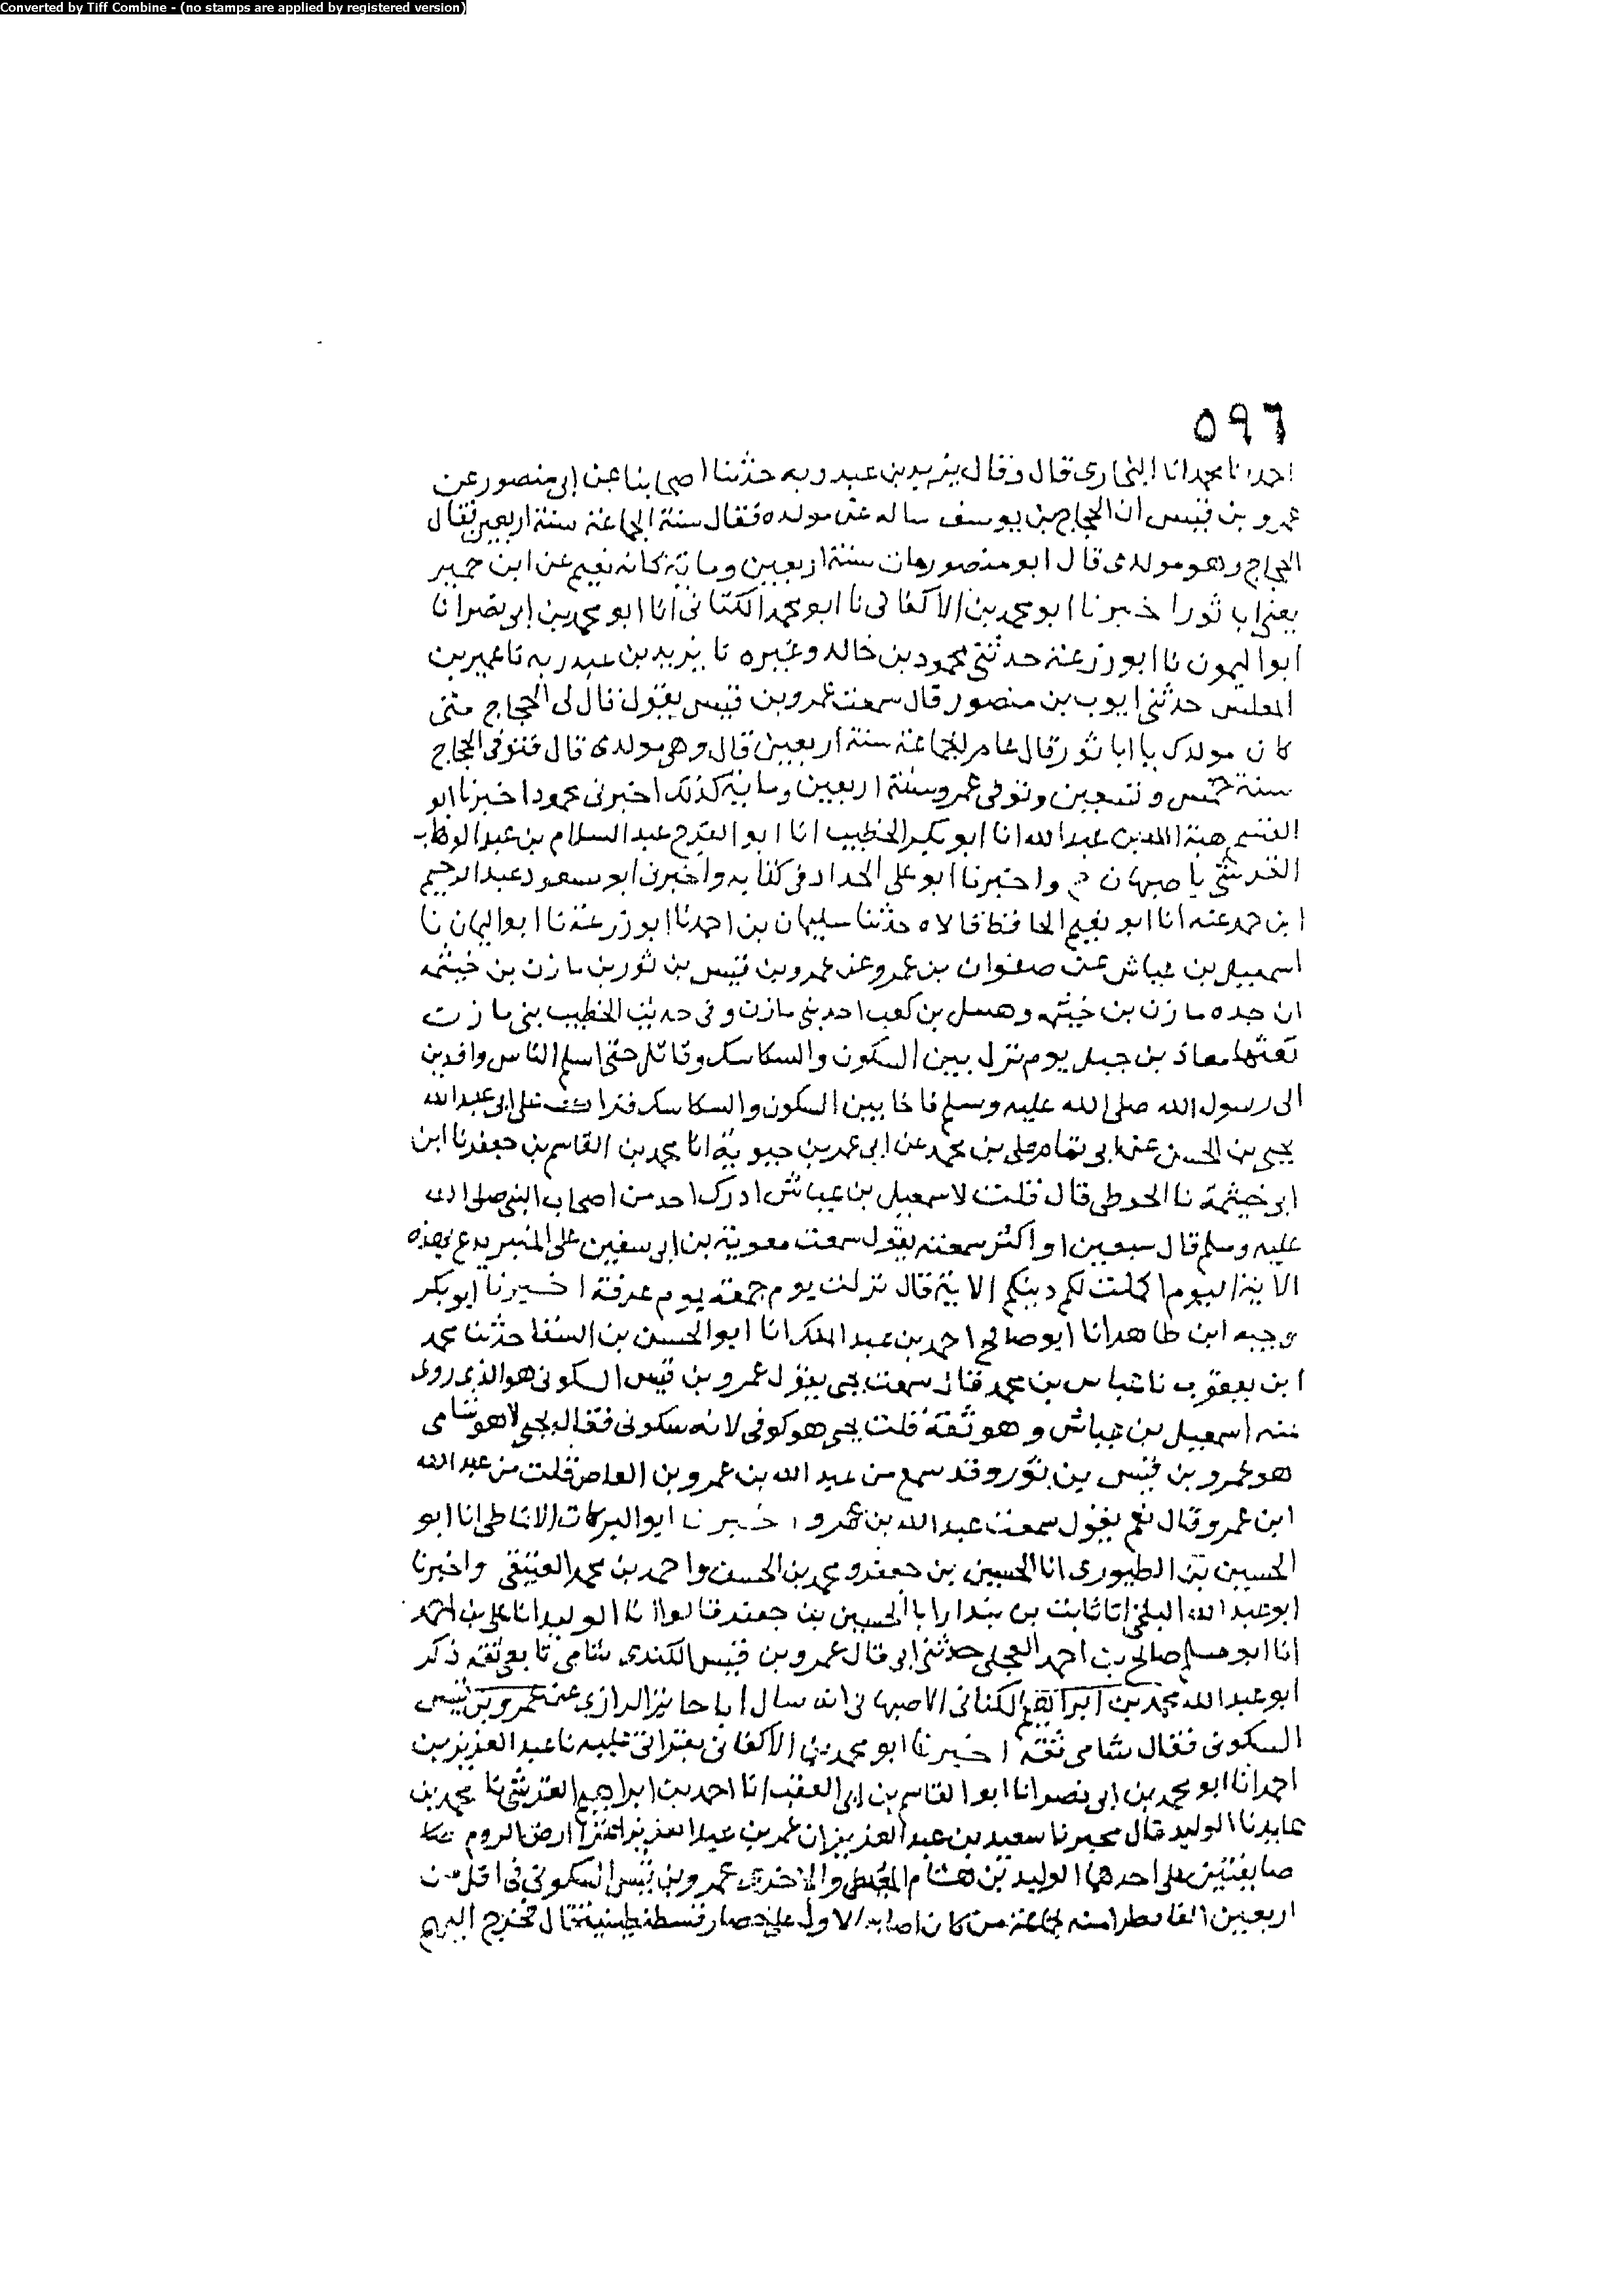 Converted by Tiff Combine - (no stamps are applied by registered version)
٥٩٦
احمد انا محمد انا البخارى قال وقال يزيد بن عبد ربه حدثنا اصحابنا عن ابى منصور عن
عمرو بن قيس ان الحجاج بن يوسف ساله عن مولده فقال سنة الجماعة سنة اربعين فقال
الحجاج وهو مولدى قال ابو منصور مات سنة اربعين وماية كناه نعيم عن ابن حمير
يعنى ابا ثور اخبرنا ابو محمد بن الاكفانى نا ابو محمد الكتانى انا ابو محمد بن ابى نصر انا
ابو الميمون نا ابو زرعة حدثنى محمود بن خالد وغيره نا يزيد بن عبد ربه نا عمير بن
المغلس حدثنى ايوب بن منصور قال سمعت عمرو بن قيس يقول قال لى الحجاج متى
كان مولدك يا ابا ثور قال عام الجماعة سنة اربعين قال وهى مولدى قال فتوفى الحجاج
سنة خمس وتسعين وتوفى عمرو سنة اربعين وماية كذلك اخبرنى محمود اخبرنا ابو
القسم هبة الله بن عبد الله انا ابو بكر الخطيب انا ابو الفرج عبد السلام بن عبد الوهاب
القرشى باصبهان ح واخبرنا ابو على الحداد فى كتابه واخبرنى ابو مسعود عبد الرحيم
ابن حمد عنه انا ابو نعيم الحافظ قالا حدثنا سليمان بن احمد نا ابو زرعة نا ابو اليمان نا
اسمعيل بن عياش عن صفوان بن عمرو عن عمرو بن قيس بن ثور بن مازن بن خيثمه
ان جده مازن بن خيثمه وهسل بن كعب احد بنى مازن وفى حديث الخطيب بنى مازن
بعثهما معاذ بن جبل يوم نزل بين السكون والسكاسك وقاتل حتى اسلم الناس وافدين
الى رسول الله صلى الله عليه وسلم فاخا بين السكون والسكاسك قرات على ابى عبد الله
يحيى بن الحسن عن ابى تمام على بن محمد عن ابى عمر بن حيوية انا محمد بن القاسم بن جعفر نا ابن
ابى خيثمة نا الحوطى قال قلت لاسمعيل بن عياش ادرك احد من اصحاب النبى صلى الله
عليه وسلم قال سبعين او اكثر سمعته يقول سمعت معوية بن ابى سفين على المنبر بهذه
الاية اليوم اكملت لكم دينكم الاية قال نزلت يوم جمعة يوم عرفة اخبرنا ابو بكر
وجيه ابن طاهر انا ابو صالح احمد بن عبد الملك انا ابو الحسن بن السقا حدثنا محمد
ابن يعقوب نا عباس بن محمد قال سمعت يحيى يقول عمرو بن قيس السكونى هو الذى روى
عنه اسمعيل بن عياش وهو ثقة قلت يحيى هو كوفى لانه سكونى فقال يحيى لا هو شامى
هو عمرو بن قيس بن ثور وقد سمع من عبد الله بن عمرو بن العاص قلت من عبد الله
ابن عمرو قال نعم يقول سمعت عبد الله بن عمرو اخبرنا ابو البركات الانماطى انا ابو
الحسين بن الطيورى انا الحسين بن جعفر ومحمد بن الحسن واحمد بن محمد العتيقى واخبرنا
ابو عبد الله البلخى انا ثابت بن بندار انا الحسين بن جعفر قالوا انا الوليد انا على بن احمد
انا ابو مسلم صالح بن احمد العجلى حدثنى ابى قال عمرو بن قيس الكندى شامى تابعى ثقة ذكر
ابو عبد الله محمد بن ابراهيم الكتانى الاصبهانى انه سال ابا حاتم الرازى عن عمرو بن قيس
السكونى فقال شامى ثقة اخبرنا ابو محمد بن الاكفانى بقراتى عليه نا عبد العزيز بن
احمد انا ابو محمد بن ابى نصر انا ابو القاسم بن ابى العقب انا احمد بن ابراهيم القرشى نا محمد بن
عايد نا الوليد قال سعيد بن عبد العزيز ان عمر بن عبد العزيز اغزا ارض الروم
صايفتين على احدهما الوليد بن هشام المعيطى والاخرى عمرو بن قيس السكونى فى اقل من
اربعين الفا من كان اصابه الاول على حصار قسطنطينية قال فخرج اليهم